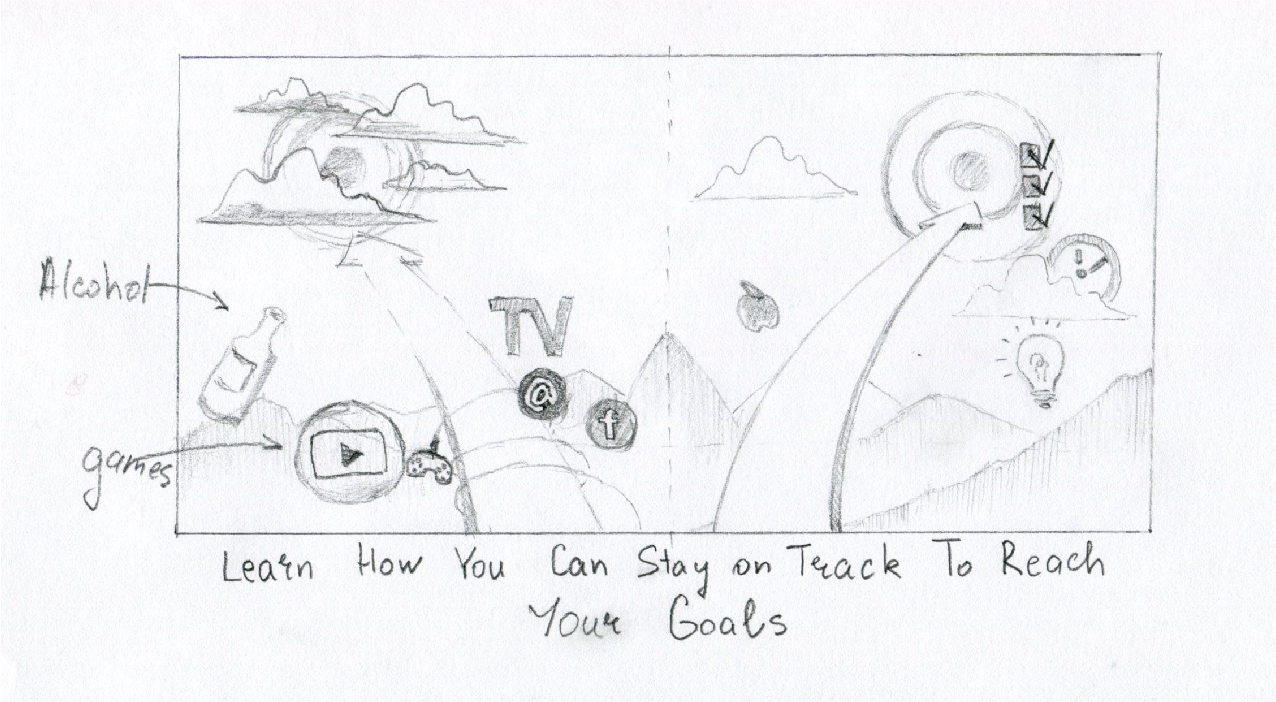 Alcohol
TV
@
t
games
Learn How You Can Stay on Track To Reach
Your Goals